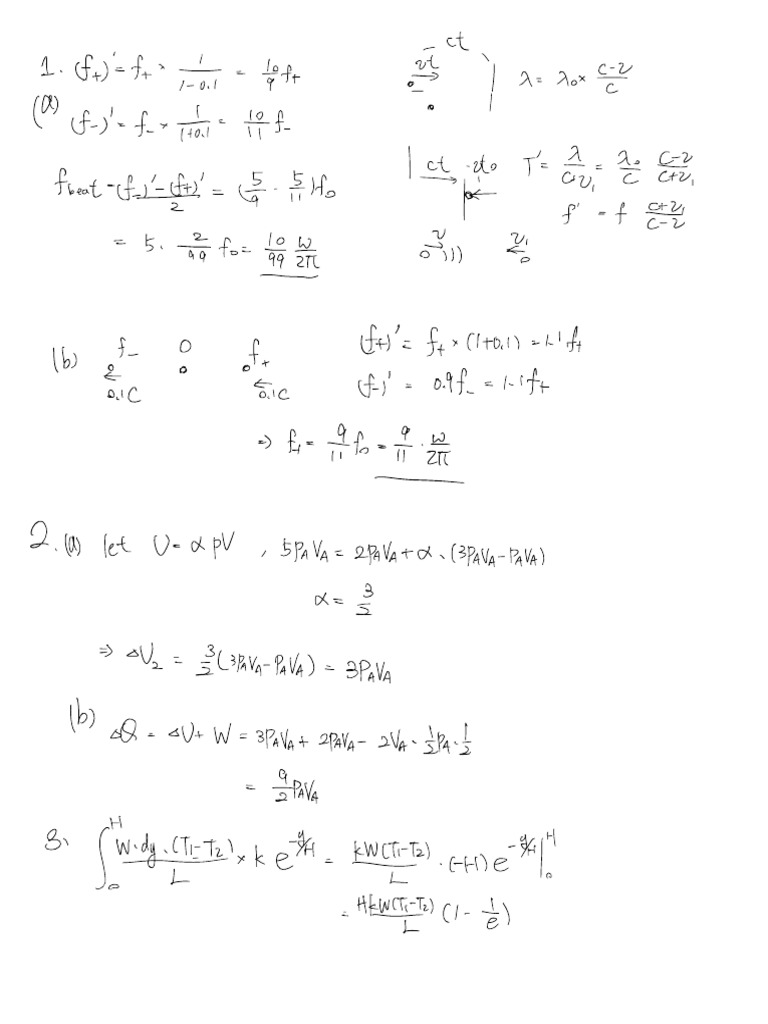 1. (f₊)' = f₊ × 1/(1-0.1) = 10/9 f₊
(a) (f₋)' = f₋ × 1/(1+0.1) = 10/11 f₋
f_beat = ((f₋)' - (f₊)')/2 = (5/9 - 5/11) f₀
= 5 · 2/99 f₀ = 10/99 w/2π
ct
vt
λ = λ₀ × (c-v)/c
ct v₁t₀ T' = λ/(c+v₁) = λ₀/c (c-v)/(c+v₁)
f' = f (c+v₁)/(c-v)
v v₁
(b) f₋ 0 f₊ (f₊)' = f₊ × (1+0.1) = 1.1 f₊
0.1C 0.1C (f₋)' = 0.9f₋ = 1.1f₊
⇒ f₊ = 9/11 f₀ = 9/11 · w/2π
2. (a) let U = α pV , 5PAVA = 2PAVA + α · (3PAVA - PAVA)
α = 3/2
⇒ ΔU₂ = 3/2 (3PAVA - PAVA) = 3PAVA
(b) ΔQ = ΔU + W = 3PAVA + 2PAVA - 2VA · 1/2 PA · 1/2
= 9/2 PAVA
3. ∫₀ᴴ W·dy·(T₁-T₂)/L × k e^(-y/H) = kW(T₁-T₂)/L · (-H) e^(-y/H) |₀ᴴ
= HkW(T₁-T₂)/L (1 - 1/e)